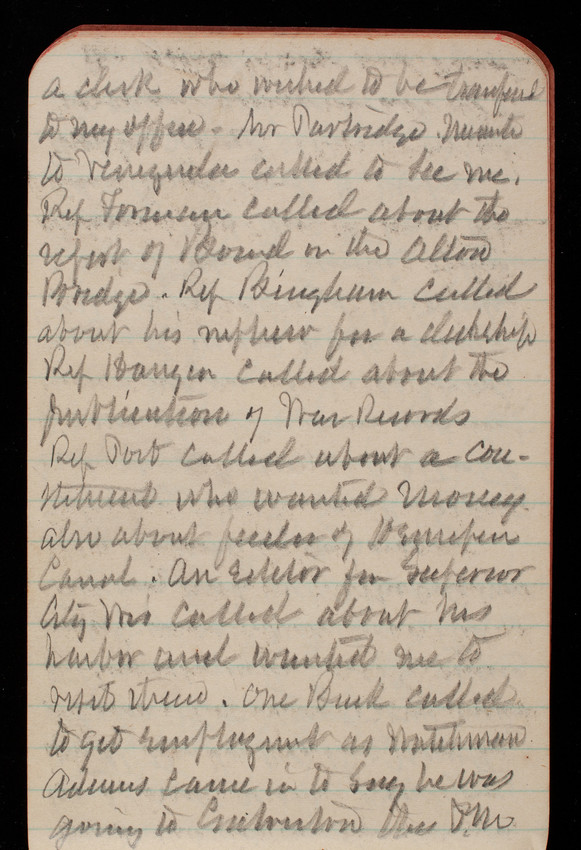 a clerk who wished to be transferred
to my office - Mr Partridge Minister
to Venezuela called to see me.
Rep Forman called about the
report of Board on the Alton
Bridge. Rep Bingham called
about his nephew for a clerkship
Rep Haugen called about the
publication of War Records
Rep Post called about a con-
stituent who wanted money
also about feeder of Hennepin
Canal. An Editor from Superior
City Wis called about his
harbor and wanted me to
visit them. One Buck called
to get employment as Watchman
Adams came in to say he was
going to Galveston this P.M.